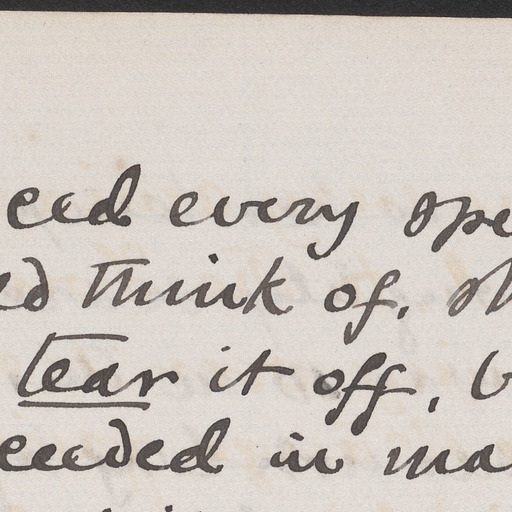 eed every spe
ld think of, sh
tear it off, b
ceeded in ma